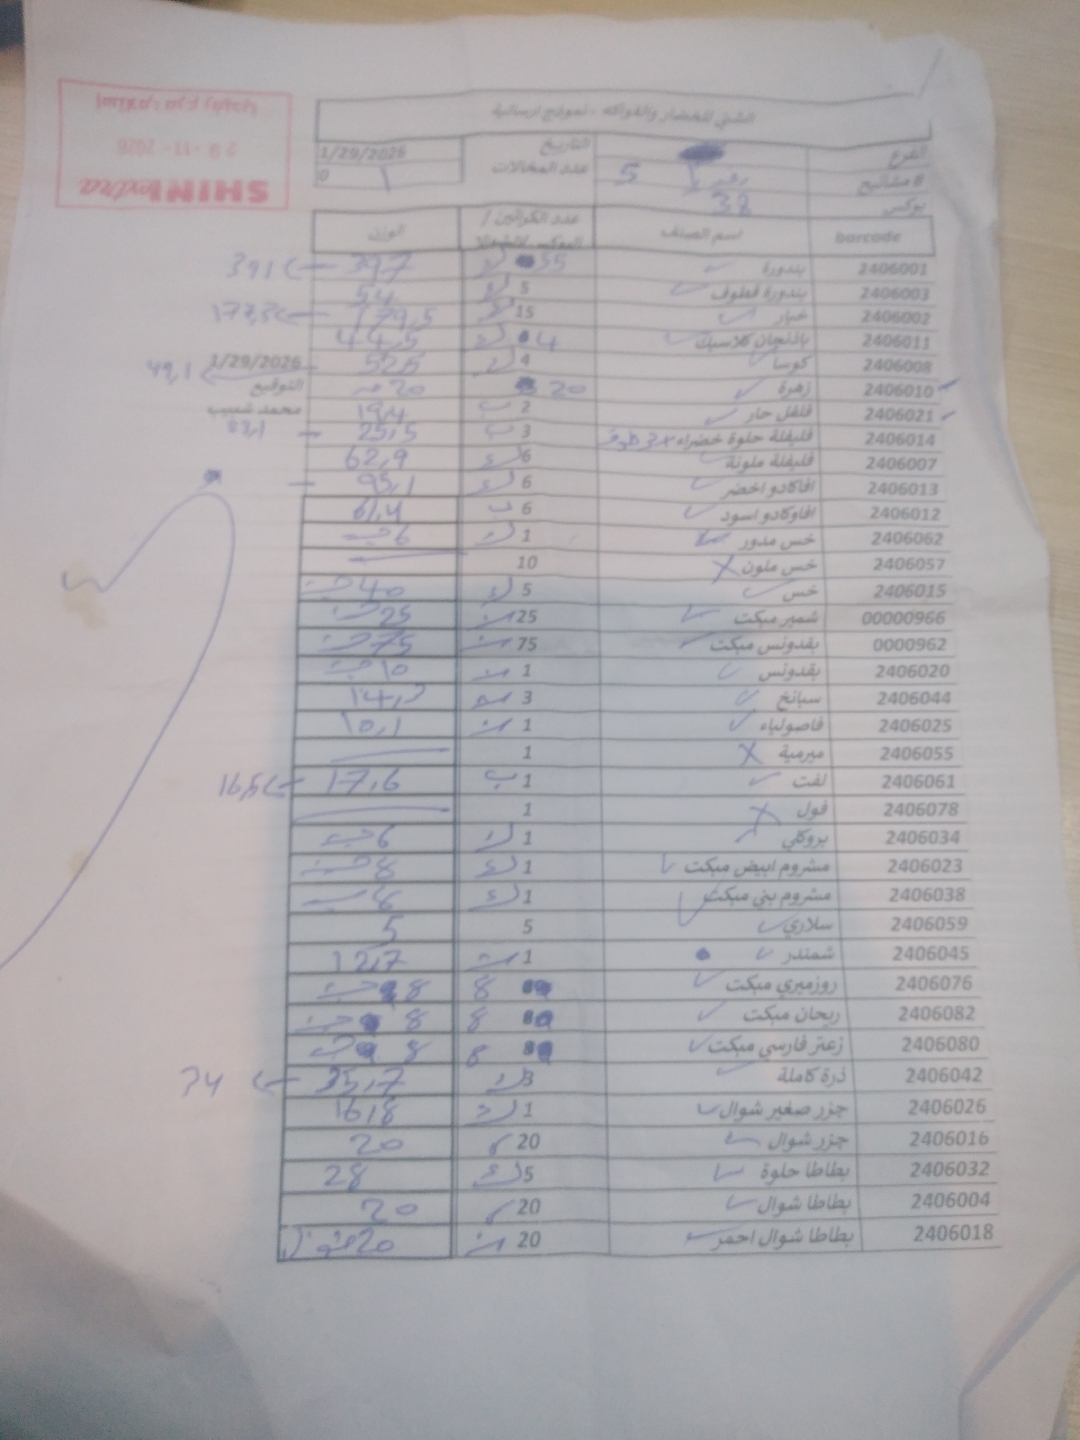 الشني للخضار والفواكه - نموذج ارسالية
الفرع التاريخ 1/29/2026
# مشاتيح 5 عدد المخالات 0
بوكس 38
barcode اسم الصنف عدد الكراتين / الوزن
2406001 بندورة 35 397 391
2406003 بندورة قطوف 5 54
2406002 خيار 15 179,5 177,5
2406011 باذنجان كلاسيك 4 44,5
2406008 كوسا 4 52,5 1/29/2026 49,1
2406010 زهرة 20 20 التوقيع
2406021 فلفل حار 2 ب 19,4 محمد شبيب
2406014 فليفلة حلوة خضراء 3 ب 25,5 83,1
2406007 فليفلة ملونة 6 62,9
2406013 افاكادو اخضر 6 95,1
2406012 افاوكادو اسود 6 ب 61,4
2406062 خس مدور 1 6
2406057 خس ملون X 10
2406015 خس 5 40
00000966 شمير مبكت 25 25
0000962 بقدونس مبكت 75 75
2406020 بقدونس 1 10
2406044 سبانخ 3 14,2
2406025 فاصولياء 1 10,1
2406055 ميرمية X 1
2406061 لفت 1 ب 17,6 16,5
2406078 فول X 1
2406034 بروكلي 1 6
2406023 مشروم ابيض مبكت 1 8
2406038 مشروم بني مبكت 1 8
2406059 سلاري 5 5
2406045 شمندر 1 12,7
2406076 روزميري مبكت 8 8
2406082 ريحان مبكت 8 8
2406080 زعتر فارسي مبكت 8 8
2406042 ذرة كاملة 3 35,7 34
2406026 جزر صغير شوال 1 16,8
2406016 جزر شوال 20 20
2406032 بطاطا حلوة 5 28
2406004 بطاطا شوال 20 20
2406018 بطاطا شوال احمر 20 20
SHINI extra
29-11-2026